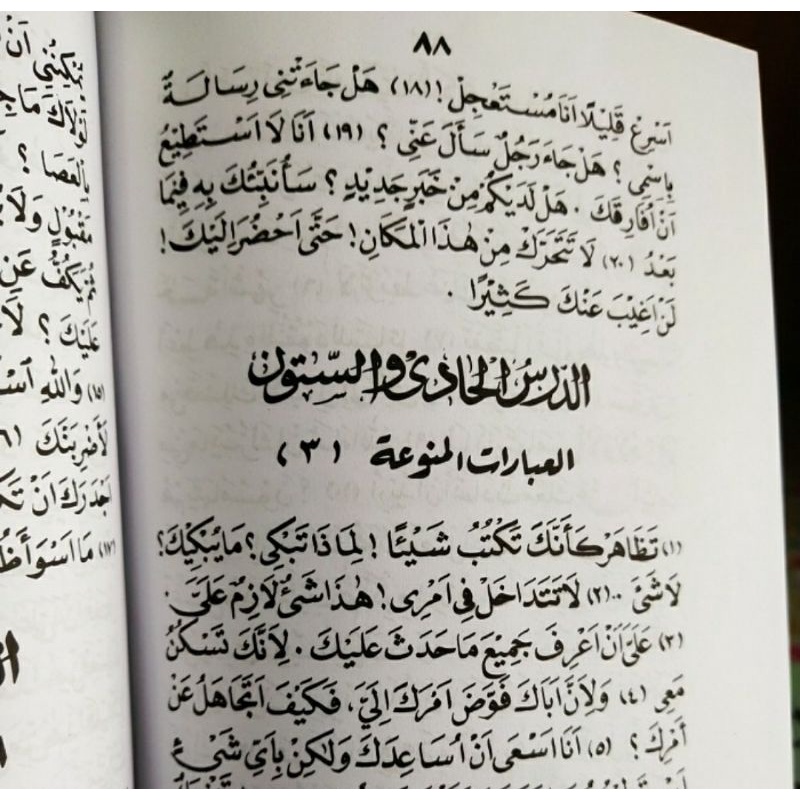 ٨٨
اَسْرِعْ قَلِيْلًا اَنَا مُسْتَعْجِلْ! (١٨) هَلْ جَاءَتْنِى رِسَالَةٌ
بِاسْمِى؟ هَلْ جَاءَ رَجُلٌ سَأَلَ عَنِّى؟ (١٩) اَنَا لَا اَسْتَطِيْعُ
اَنْ اُفَارِقَكَ. هَلْ لَدَيْكُمْ مِنْ خَبَرٍ جَدِيْدٍ؟ سَأُنَبِّئُكَ بِهِ فِيْمَا
بَعْدُ (٢٠) لَا تَتَحَرَّكْ مِنْ هٰذَا الْمَكَانِ! حَتَّى اَحْضُرَ اِلَيْكَ!
لَنْ اَغِيْبَ عَنْكَ كَثِيْرًا.
الدَّرْسُ الْحَادِى وَالسِّتُّونَ
العبارات المنوعة (٣)
(١) تَظَاهَرْ كَأَنَّكَ تَكْتُبُ شَيْئًا! لِمَاذَا تَبْكِى؟ مَا يُبْكِيْكَ؟
لَا شَىْءَ.. (٢) لَا تَتَدَاخَلْ فِى اَمْرِى! هٰذَا شَىْءٌ لَازِمٌ عَلَىَّ.
(٣) عَلَىَّ اَنْ اَعْرِفَ جَمِيْعَ مَا حَدَثَ عَلَيْكَ. لِاَنَّكَ تَسْكُنُ
مَعِى (٤) وَلِاَنَّ اَبَاكَ فَوَّضَ اَمْرَكَ اِلَىَّ، فَكَيْفَ اَتَجَاهَلُ عَنْ
اَمْرِكَ؟ (٥) اَنَا اَسْعَى اَنْ اُسَاعِدَكَ وَلٰكِنْ بِاَىِّ شَىْءٍ
تُكَفُّ عَنْ
عَلَيْكَ؟ لَا
(١٥) وَاللهِ
لَأَضْرِبَنَّكَ
(١٧) مَا اَسْوَأَ